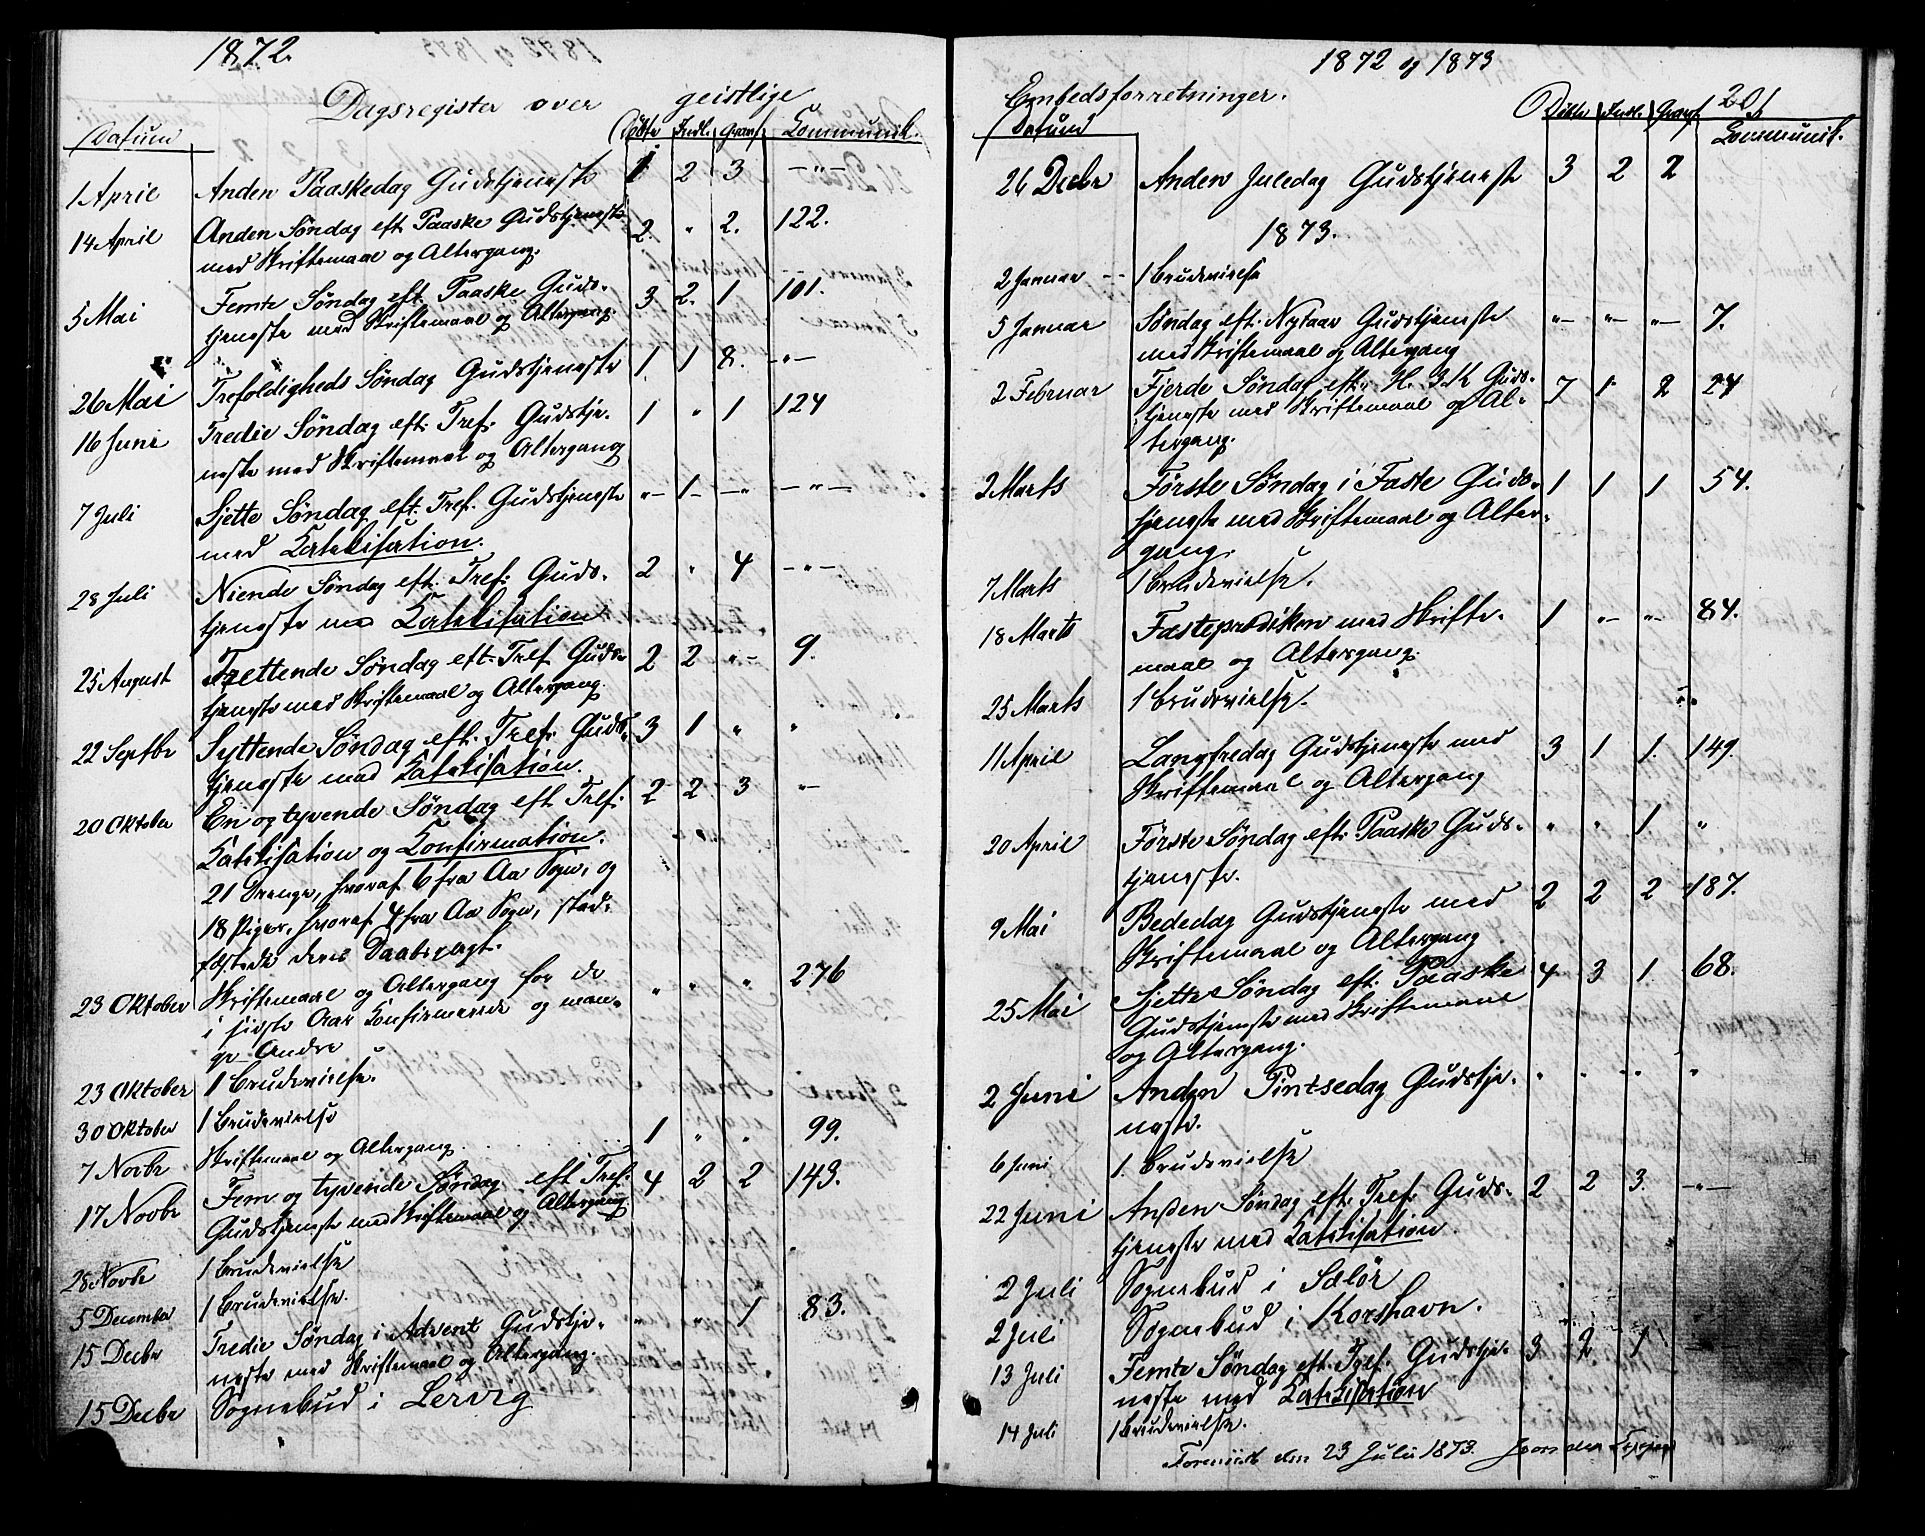 1872.
Dagsregister over geistlige
Datum Döbte Indl. Gravf. Kommunik.
1 April Anden Paaskedag Gudstjeneste 1 2 3 —"—
14 April Anden Søndag eft Paaske Gudstjeneste 2. " 2. 122.
med Skriftemaal og Altergang.
5 Mai Femte Søndag eft. Paaske Guds- 3 2. 1 101.
tjeneste med Skriftemaal og Altergang.
26 Mai Trefoldigheds Søndag Gudstjeneste 1 1 8. —"—
16 Juni Tredie Søndag eft. Tref. Gudstje- 1 " 1 124
neste med Skriftemaal og Altergang
7 Juli Sjette Søndag eft. Tref. Gudstjeneste "— 1— —" —"—
med Katekisation.
28 Juli Niende Søndag eft. Tref: Guds- 2 " 4 —"—
tjeneste med Katekisation
25 August Trettende Søndag eft. Tref Guds- 2 2 "— 9.
tjeneste med Skriftemaal og Altergang.
22 Septbr Syttende Søndag eft. Tref: Guds- 3 1 " "
tjeneste med Katekisation.
20 Oktober En og tyvende Søndag eft Tref: 2 2 3 "—
Katekisation og Konfirmation.
21 Drenge, hvoraf 6 fra Aa Sogn, og
18 Piger, hvoraf 4 fra Aa Sogn, stad-
fæstede deres Daabspagt.
23 Oktober Skriftemaal og Altergang for de " " " 276
i sidste Aar Konfirmerede og man-
ge Andre
23 Oktober 1 Brudevielse.
30 Oktober 1 Brudevielse
7 Novbr Skriftemaal og Altergang 1 " " 99.
17 Novbr Fem og tyvende Søndag eft Tref: 4 2 2 143.
Gudstjeneste med Skriftemaal og Altergang
28 Novbr 1 Brudevielse
5 December 1 Brudevielse.
15 Decbr Tredie Søndag i Advent Gudstje- " " 1 83.
neste med Skriftemaal og Altergang.
15 Decbr Sognebud i Lervig
1872 og 1873
Embedsforretninger. 201
Datum Döbte Indl. Gravf. Kommunik.
26 Decbr Anden Juledag Gudstjeneste 3 2 2
1873.
2 Januar -- 1 Brudevielse
5 Januar Søndag eft. Nytaar Gudstjeneste "— "— "— 7.
med Skriftemaal og Altergang
2 Februar Fjerde Søndag eft. H. 3 K Guds- 7 1 2 24
tjeneste med Skriftemaal og Al-
tergang.
2 Marts Første Søndag i Faste Guds- 1 1 1 54.
tjeneste med Skriftemaal og Alter-
gang.
7 Marts 1 Brudevielse.
18 Marts Fasteprædiken med Skrifte- 1 "— "— 84.
maal og Altergang.
25 Marts 1 Brudevielse.
11 April Langfredag Gudstjeneste med 3 1 1. 149.
Skriftemaal og Altergang
20 April Første Søndag eft. Paaske Guds- " " 1 "
tjeneste.
9 Mai Bededag Gudstjeneste med 2 2 2 187.
Skriftemaal og Altergang
25 Mai Sjette Søndag eft. Paaske 4 3 1. 68.
Gudstjeneste med Skriftemaal
og Altergang.
2 Juni Anden Pintsedag Gudstje- " " " "
neste.
6 Juni 1. Brudevielse
22 Juni Anden Søndag eft. Tref. Guds- 2 2 3. —"—
tjeneste med Katekisation.
2 Juli Sognebud i Sælör
2 Juli Sognebud i Korshavn.
13 Juli Femte Søndag eft. Tref. Gudstje- 3 2. 1
neste med Katekisation
14 Juli 1 Brudevielse.
den 23 Juli 1873.